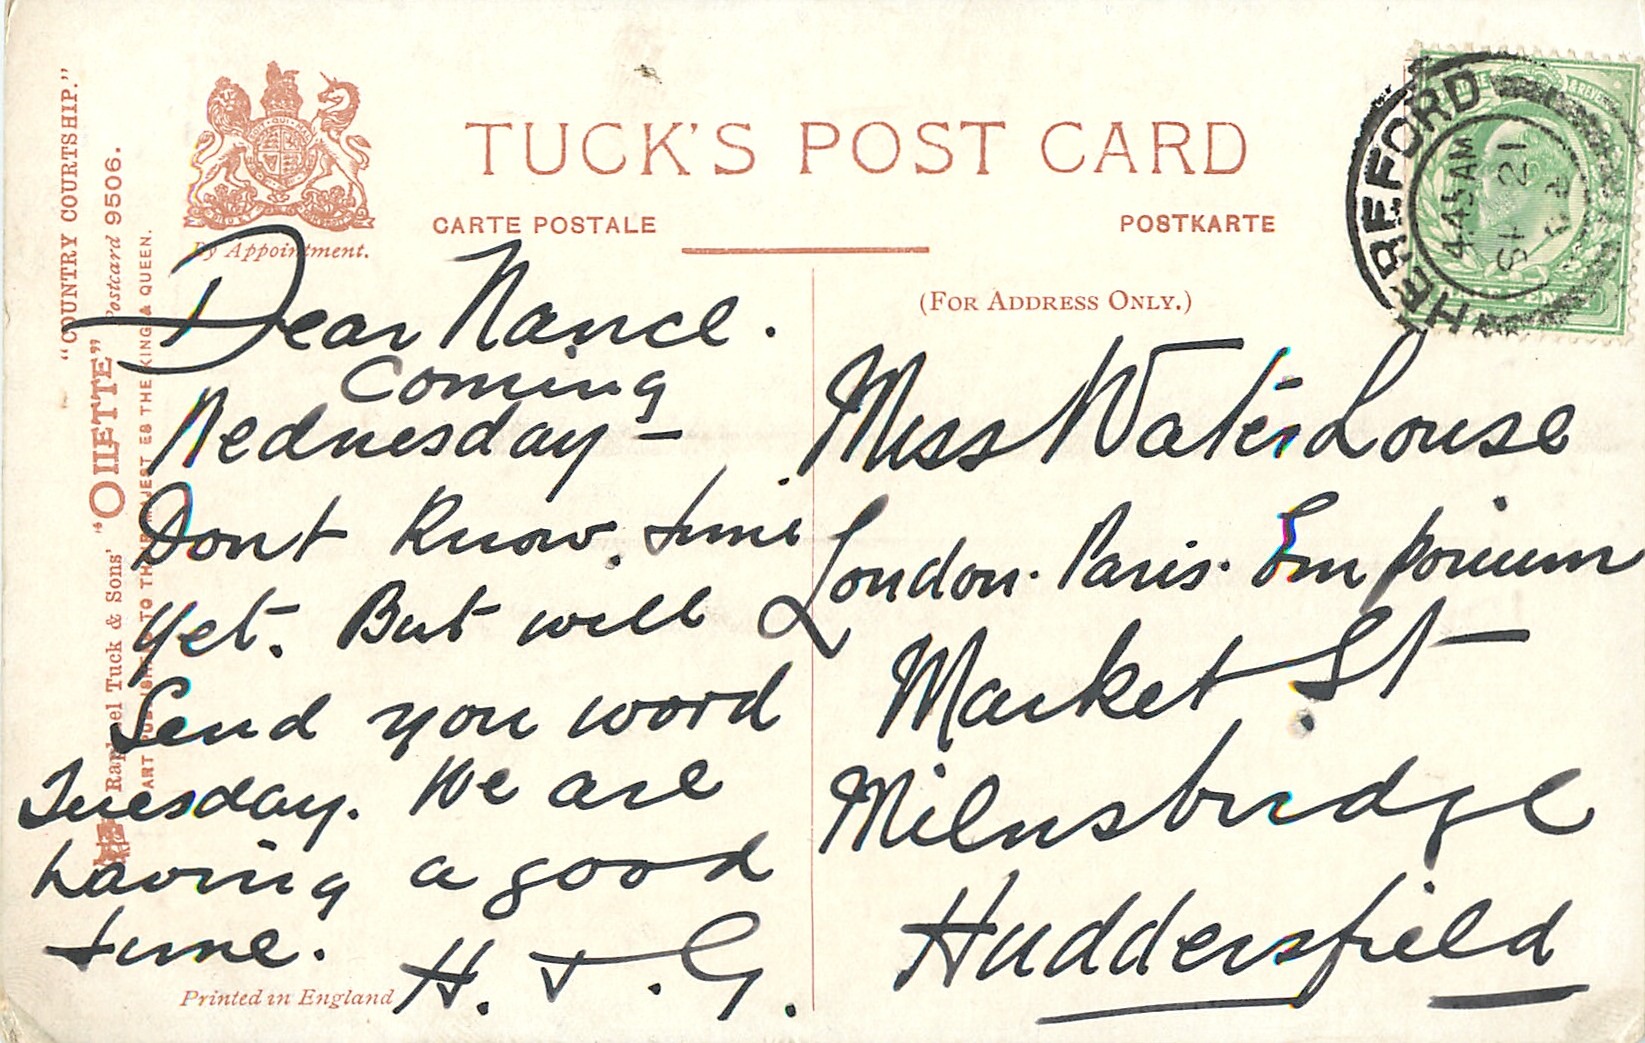 "COUNTRY COURTSHIP."
"OILETTE" Postcard 9506.
Raphael Tuck & Sons'
ART PUBLISHERS TO THEIR MAJESTIES THE KING & QUEEN.
By Appointment.
TUCK'S POST CARD
CARTE POSTALE
POSTKARTE
(FOR ADDRESS ONLY.)
HEREFORD
4.45AM
21
HALFPENNY
Dear Nance.
Coming
Wednesday –
Dont know. time
yet. But will
Send you word
Tuesday. We are
having a good
time.
H. & G.
Printed in England
Miss Waterhouse
London. Paris. Emporium
Market St
Milnsbridge
Huddersfield